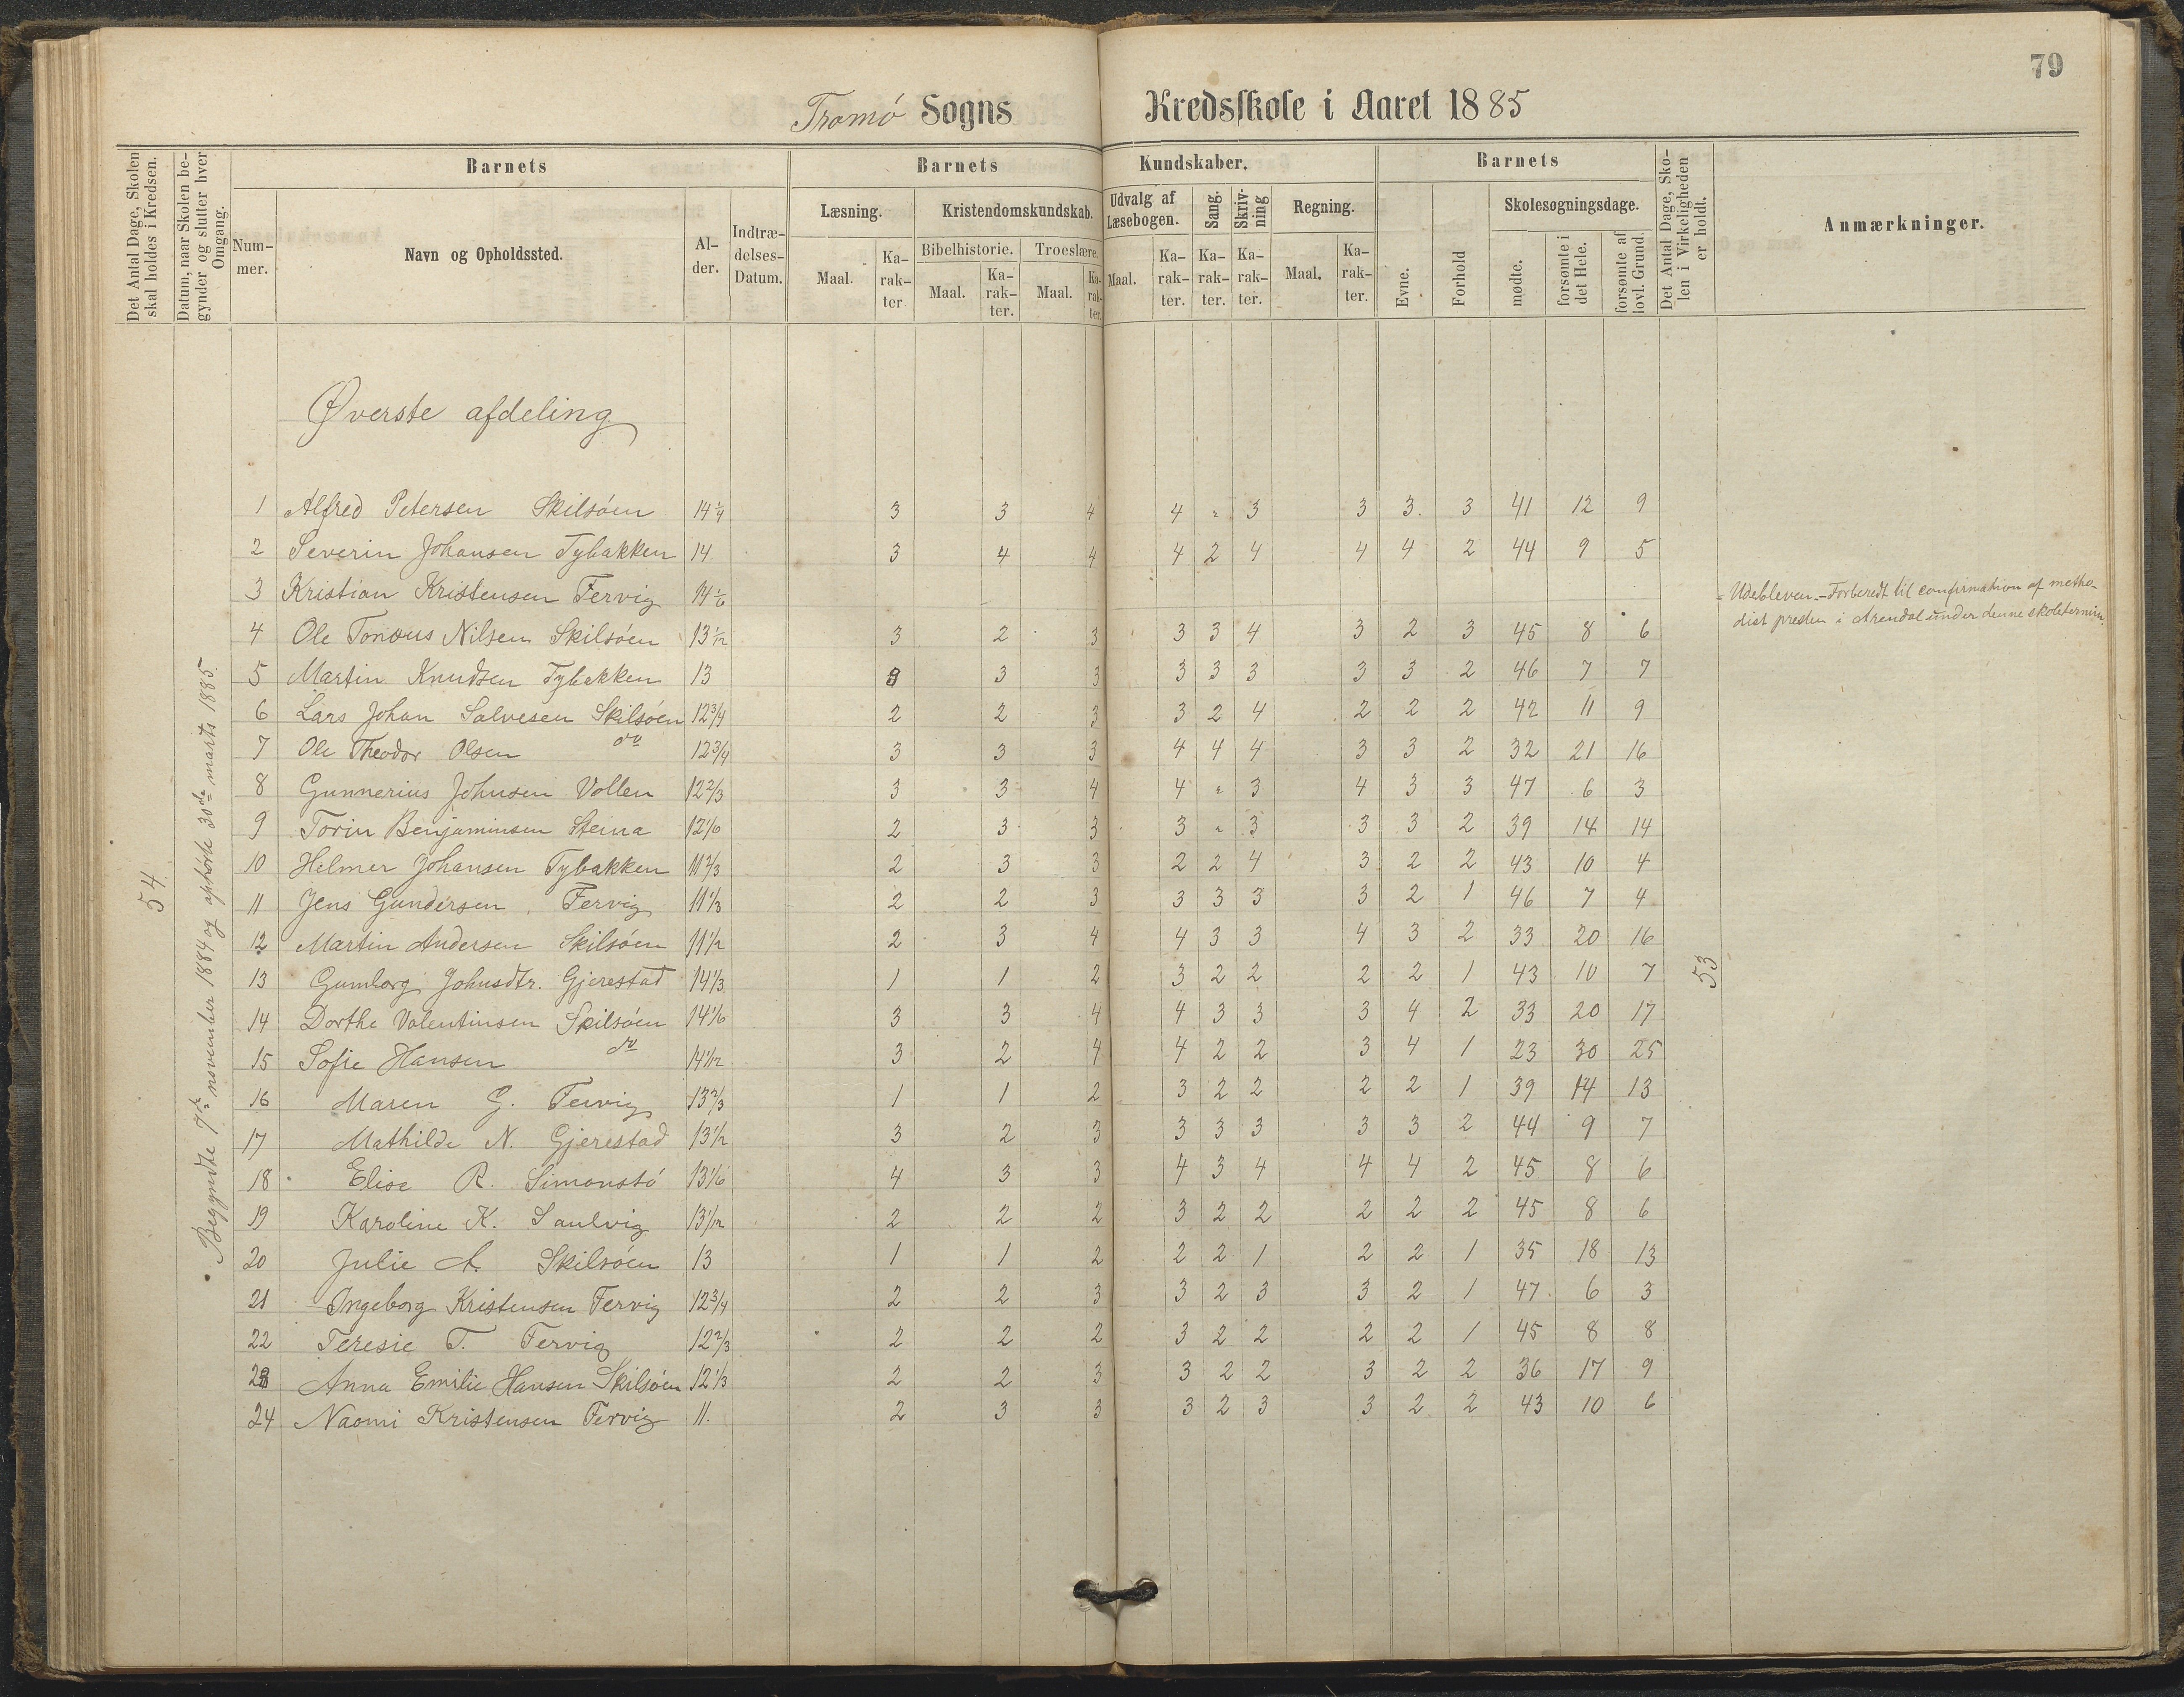 79
Tromø Sogns Kredsskole i Aaret 1885
Det Antal Dage, Skolen skal holdes i Kredsen.
Datum, naar Skolen begynder og slutter hver Omgang.
Barnets
Barnets Kundskaber.
Barnets
Det Antal Dage, Skolen i Virkeligheden er holdt.
Anmærkninger.
Nummer.
Navn og Opholdssted.
Alder.
Indtrædelses-Datum.
Læsning.
Kristendomskundskab.
Udvalg af Læsebogen.
Sang.
Skrivning
Regning.
Evne.
Forhold
Skolesøgningsdage.
Bibelhistorie.
Troeslære.
Maal.
Karakter
Maal.
Karakter.
Maal.
Karakter.
Maal.
Karakter.
Karakter.
Karakter.
Maal.
Karakter.
mødte.
forsømte i det Hele.
forsømte af lovl. Grund.
54
Begyndte 7de november 1884 og ophørte 30de marts 1885.
53
Øverste afdeling
1 Alfred Petersen Skilsøen 14 1/4 3 3 4 4 " 3 3 3. 3 41 12 9
2 Severin Johansen Tybakken 14 3 4 4 4 2 4 4 4 2 44 9 5
3 Kristian Kristensen Fervig 14 1/6 Udebleven. - Forberedt til confirmation af metho-
dist presten i Arendal under denne skoletermin.
4 Ole Tonæus Nilsen Skilsøen 13 1/12 3 2 3 3 3 4 3 2 3 45 8 6
5 Martin Knudsen Tybakken 13 3 3 3 3 3 3 3 3 2 46 7 7
6 Lars Johan Salvesen Skilsøen 12 3/4 2 2 3 3 2 4 2 2 2 42 11 9
7 Ole Theodor Olsen do 12 3/4 3 3 3 4 4 4 3 3 2 32 21 16
8 Gunnerius Johnsen Vollen 12 2/3 3 3 4 4 " 3 4 3 3 47 6 3
9 Torin Benjaminsen Steina 12 1/6 2 3 3 3 " 3 3 3 2 39 14 14
10 Helmer Johansen Tybakken 11 2/3 2 3 3 2 2 4 3 2 2 43 10 4
11 Jens Gundersen Fervig 11 1/3 2 2 3 3 3 3 3 2 1 46 7 4
12 Martin Andersen Skilsøen 11 1/2 2 3 4 4 3 3 4 3 2 33 20 16
13 Gumborg Johnsdtr. Gjerestad 14 1/3 1 1 2 3 2 2 2 2 1 43 10 7
14 Dorthe Valentinsen Skilsøen 14 1/6 3 3 4 4 3 3 3 4 2 33 20 17
15 Sofie Hansen do 14 1/12 3 2 4 4 2 2 3 4 1 23 30 25
16 Maren G. Fervig 13 2/3 1 1 2 3 2 2 2 2 1 39 14 13
17 Mathilde N. Gjerestad 13 1/2 3 2 3 3 3 3 3 3 2 44 9 7
18 Elise R. Simonstø 13 1/6 4 3 3 4 3 4 4 4 2 45 8 6
19 Karoline K. Saulvig 13 1/12 2 2 2 3 2 2 2 2 2 45 8 6
20 Julie A. Skilsøen 13 1 1 2 2 2 1 2 2 1 35 18 13
21 Ingeborg Kristensen Fervig 12 3/4 2 2 3 3 2 3 3 2 1 47 6 3
22 Teresie T. Fervig 12 2/3 2 2 2 3 2 2 2 2 1 45 8 8
23 Anna Emilie Hansen Skilsøen 12 1/3 2 2 3 3 2 2 3 2 2 36 17 9
24 Naomi Kristensen Fervig 11. 2 3 3 3 2 3 3 2 2 43 10 6